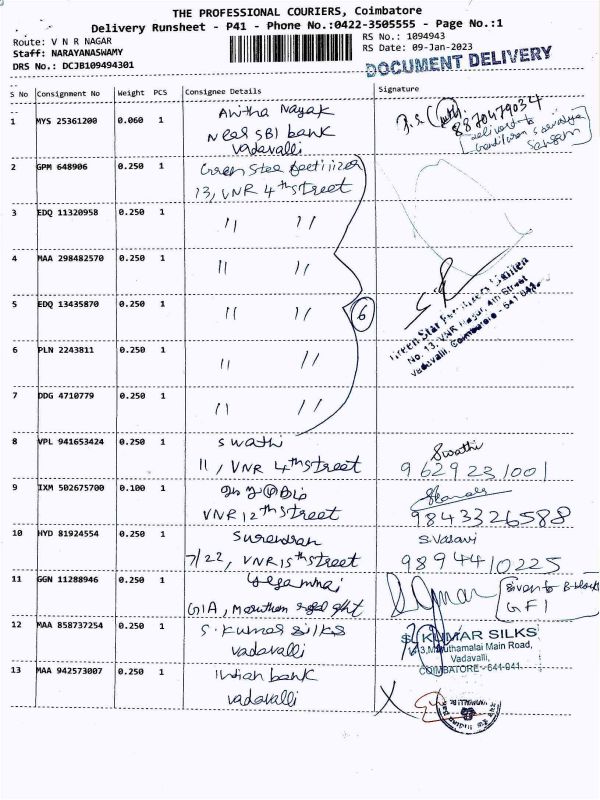 THE PROFESSIONAL COURIERS, Coimbatore
Delivery Runsheet - P41 - Phone No.:0422-3505555 - Page No.:1
Route: V N R NAGAR
RS No.: 1094943
Staff: NARAYANASWAMY
RS Date: 09-Jan-2023
DRS No.: DCJB109494301
DOCUMENT DELIVERY
S No Consignment No Weight PCS Consignee Details Signature
1 MYS 25361200 0.060 1 Anitha Nayak
Near SBI bank
Vadavalli
8870479034
2 GPM 648906 0.250 1 Green Star Fertilizer
13, VNR 4th street
3 EDQ 11320958 0.250 1 " "
4 MAA 298482570 0.250 1 " "
5 EDQ 13435870 0.250 1 " "
6
Green Star Fertilizers Limited
No. 13, VNR Nagar, 4th Street
Vadavalli, Coimbatore - 641 041.
6 PLN 2243811 0.250 1 " "
7 DDG 4710779 0.250 1 " "
8 VPL 941653424 0.250 1 Swathi
11, VNR 4th street
Swathi
9629231001
9 IXM 502675700 0.100 1
VNR 12th street
9843326588
10 HYD 81924554 0.250 1 Surendran
7/22, VNR 15th street
S. Vasavi
9894410225
11 GGN 11288946 0.250 1
G1A, Marutham
Given to B-block
GF1
12 MAA 858737254 0.250 1 S. Kumar Silks
Vadavalli
S. KUMAR SILKS
Maruthamalai Main Road,
Vadavalli,
COIMBATORE - 641 041.
13 MAA 942573007 0.250 1 Indian bank
Vadavalli
X